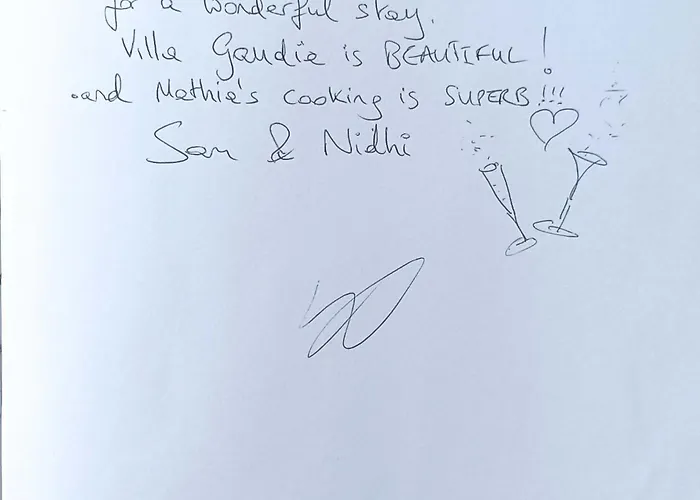 for a wonderful stay.
Villa Gaudia is BEAUTIFUL!
and Mathie's cooking is SUPERB!!!
Sam & Nidhi